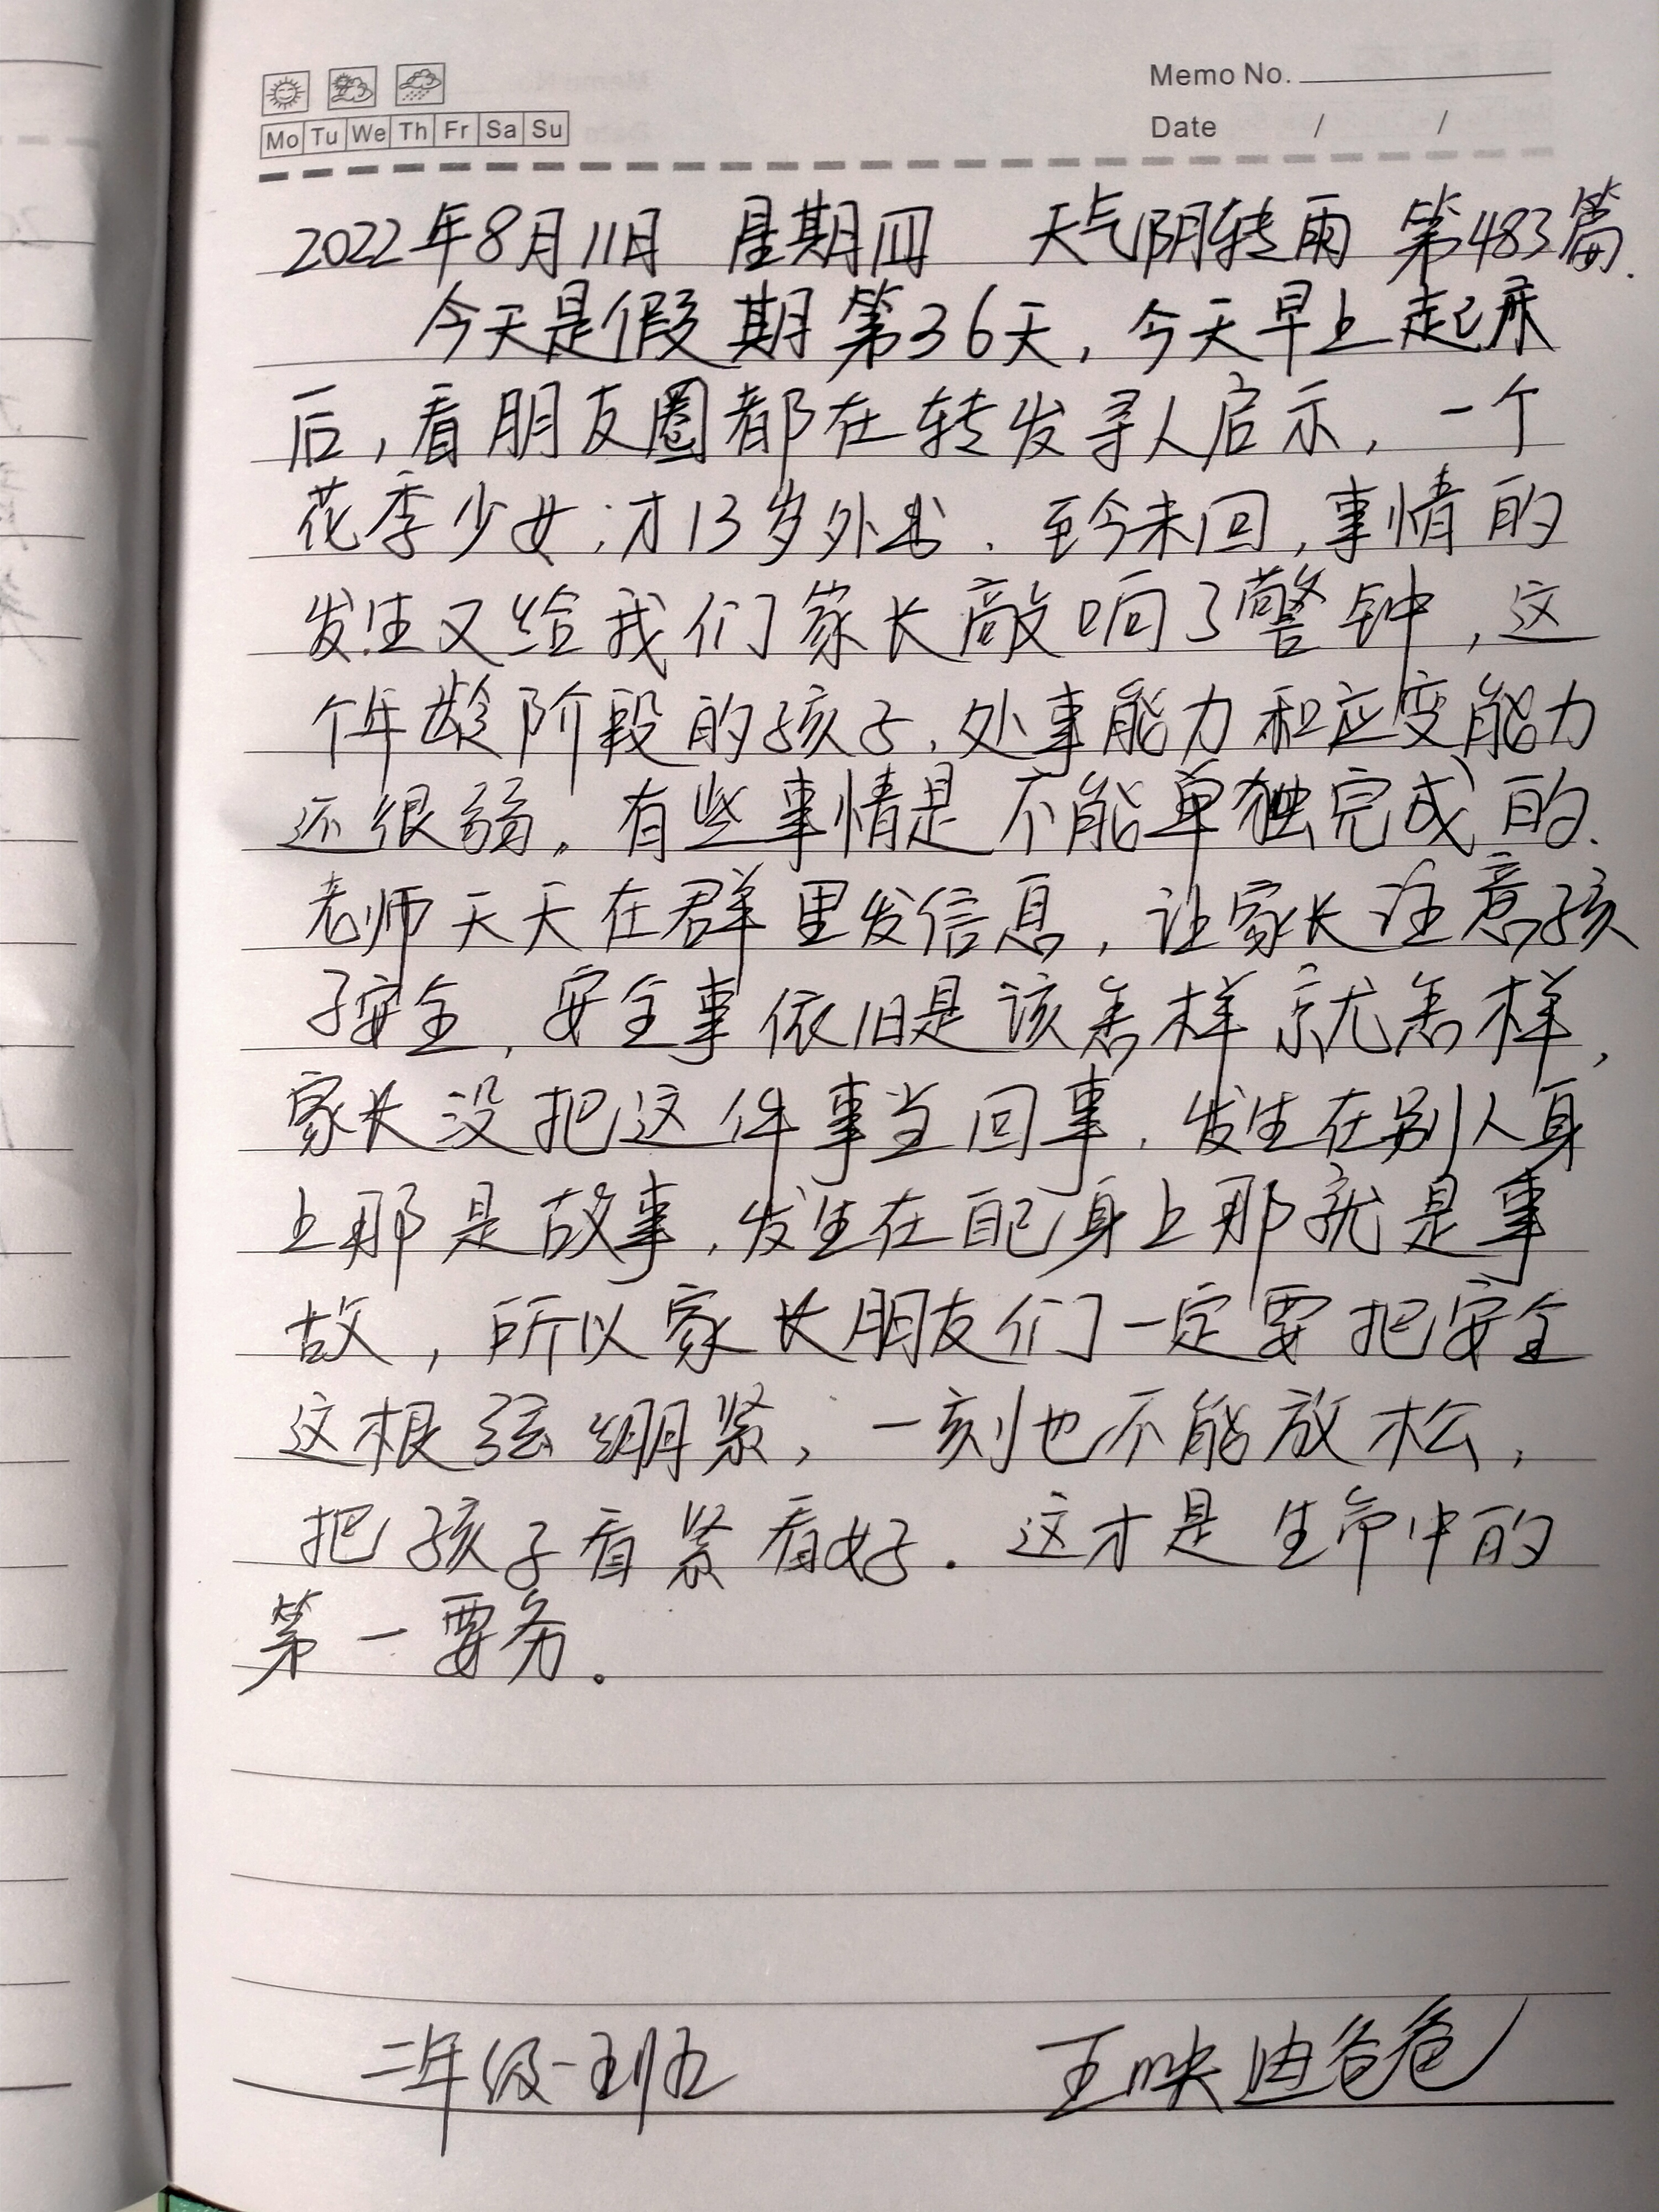 Memo No.
Mo Tu We Th Fr Sa Su
Date / /
2022年8月11日 星期四 天气阴转雨 第483篇.
今天是假期第36天,今天早上起床
后,看朋友圈都在转发寻人启示,一个
花季少女;才13岁外出.至今未回,事情的
发生又给我们家长敲响了警钟,这
个年龄阶段的孩子,处事能力和应变能力
还很弱。有些事情是不能单独完成的.
老师天天在群里发信息,让家长注意孩
子安全,安全事依旧是该怎样就怎样,
家长没把这件事当回事,发生在别人身
上那是故事,发生在自己身上那就是事
故,所以家长朋友们一定要把安全
这根弦绷紧,一刻也不能放松,
把孩子看紧看好.这才是生命中的
第一要务。
二年级一班 王映迪爸爸